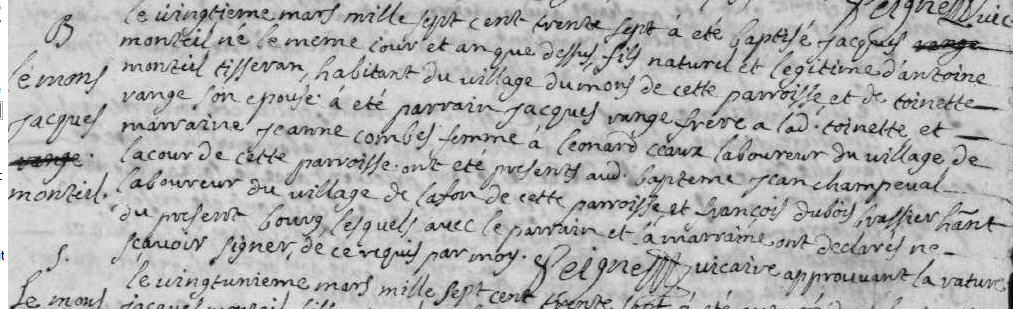 Seigne vic
B
le vingtieme mars mille sept cent trente sept à été baptisé jacques vange
monteil ne le meme jour et an que dessus, fils naturel et legitime d'antoine
le mons
monteil tisseran, habitant du village du mons de cette parroisse et de toinette
vange son epouse. à été parrain jacques vange frère a lad. toinette et
jacques
marraine jeanne combes femme à leonard ceaux laboureur du village de
vange.
lacour de cette parroisse. ont été presents aud. bapteme jean champeval
monteil.
laboureur du village de lafon de cette parroisse et françois dubois hant
du present bourg lesquels avec le parrain et la marraine ont declarés ne
sçavoir signer, de ce requis par moy. Seigne vicaire approuvant la rature
S.
le vingtunieme mars mille sept cent trente sept à été
Le mons
jacques